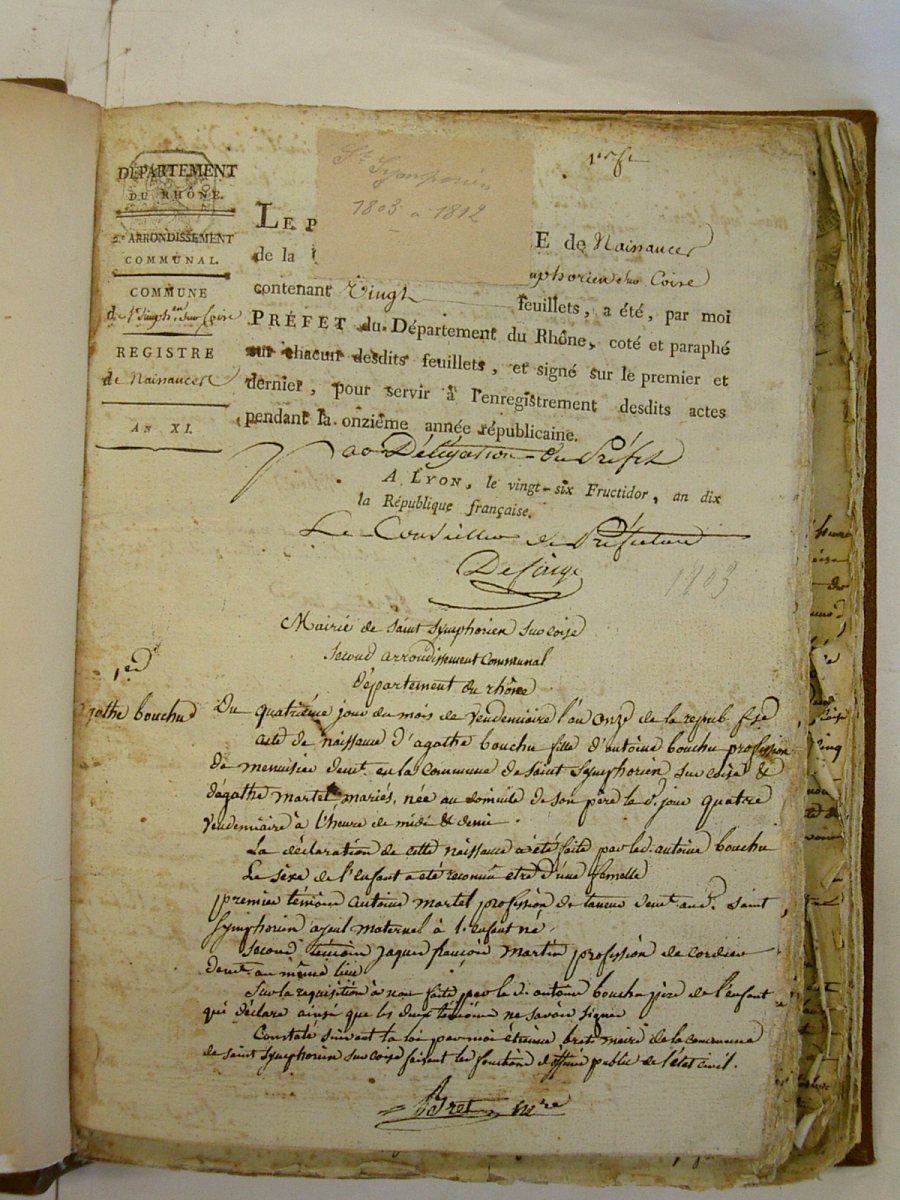 DÉPARTEMENT
DU RHÔNE.
2e ARRONDISSEMENT
COMMUNAL.
COMMUNE
de St Simphen sur Coise
REGISTRE
de Naissances
AN XI.
St Symphorien
1803 a 1812
LE P E de Naissances
de la mphorien sur Coise
contenant Vingt feuillets, a été, par moi
PRÉFET du Département du Rhône, coté et paraphé
sur chacun desdits feuillets, et signé sur le premier et
dernier, pour servir à l'enregistrement desdits actes
pendant la onzième année républicaine.
Par Délégation du Préfet
A LYON, le vingt-six Fructidor, an dix
la République française.
Le Conseiller de Préfecture
1803
Mairie de Saint Symphorien sur coise
second arrondissement Communal
département du rhône
1er
agathe bouchu
Du quatrième jour du mois de Vendemiaire l'an onze de la repub. fse
acte de naissance d'agathe bouchu fille d'antoine bouchu profession
de menuisier demt. en la Commune de Saint Symphorien sur coise &
d'agathe martel mariés, née au domicile de son père le d. jour quatre
Vendemiaire à l'heure de midi & demi.
La déclaration de cette naissance a été faite par led. antoine bouchu
Le sexe de l'enfant a été reconnu etre d'une femelle
premier témoin antoine martel profession de taneur demt. aud. Saint
Symphorien ayeul maternel à l'enfant né.
Second témoin jaques françois martin profession de cordier
demt. au même lieu
Sur la requisition à nous faite par le d. antoine bouchu père de l'enfant
qui déclare ainsi que les deux témoins ne savoir signer
Constaté suivant la loi par moi étienne bret maire de la commune
de saint Symphorien sur coise faisant les fonctions d'officier public de l'état civil.
Bret mre